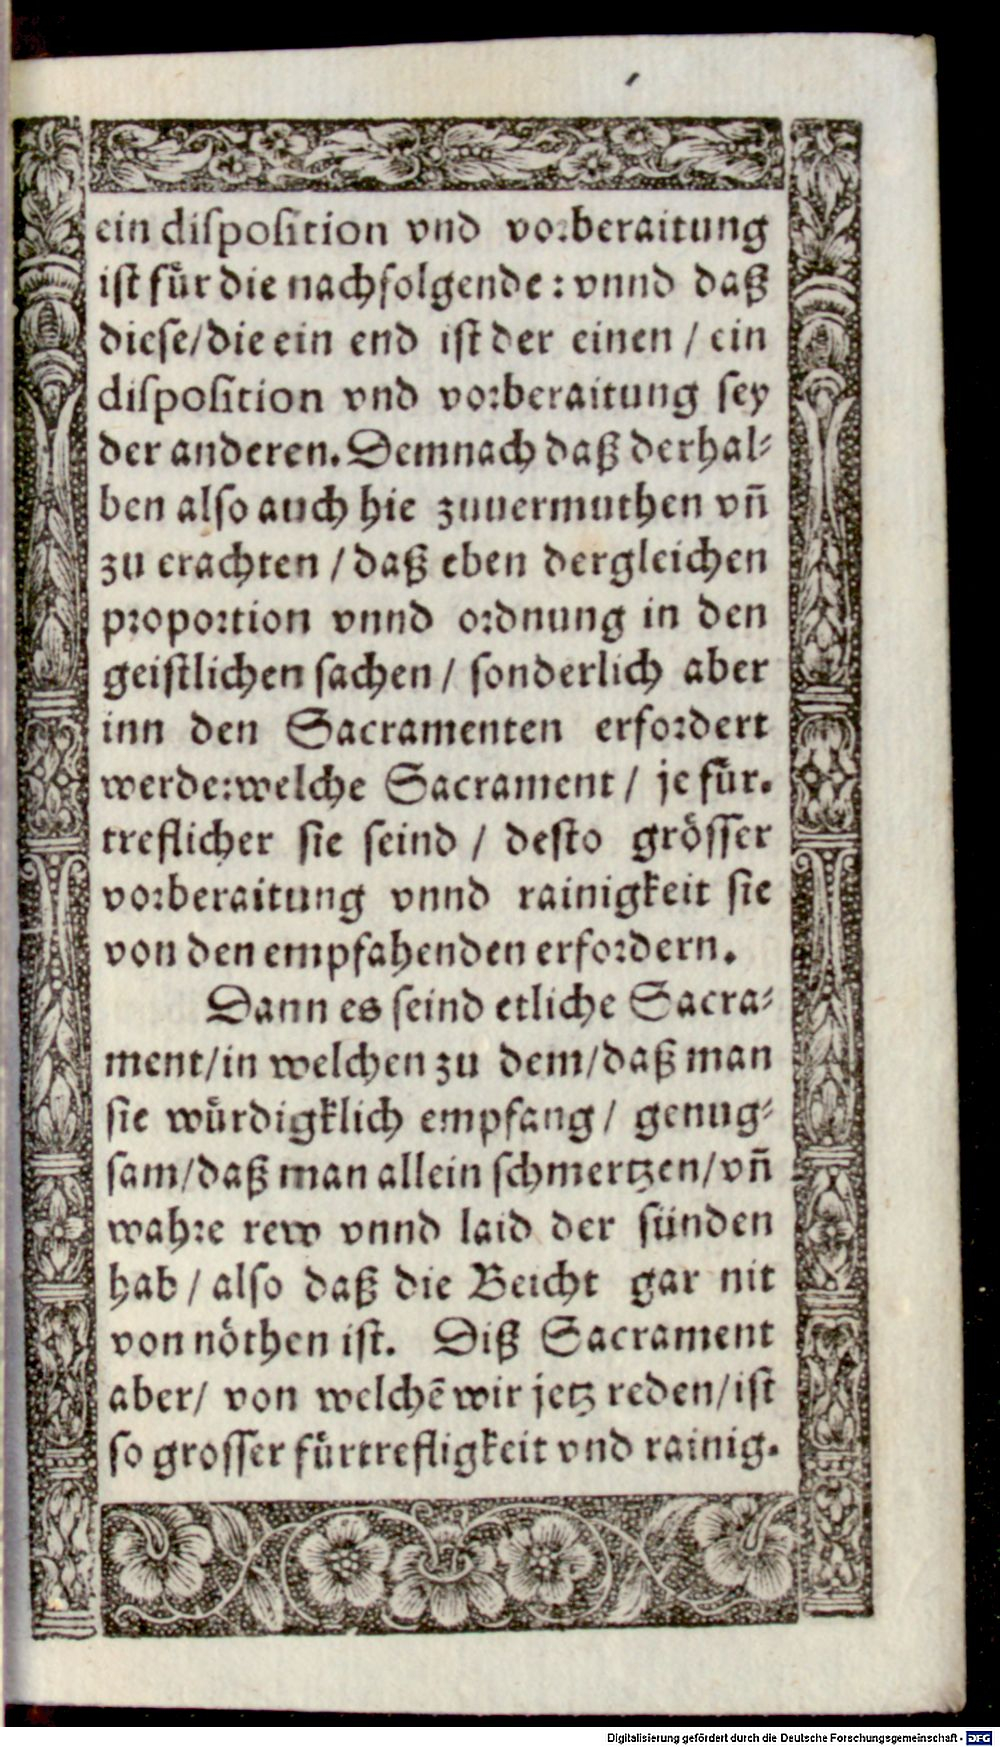 ein disposition vnd vorberaitung
ist für die nachfolgende: vnnd daß
diese/die ein end ist der einen / ein
disposition vnd vorberaitung sey
der anderen. Demnach daß derhal-
ben also auch hie zuuermuthen vn̄
zu erachten / daß eben dergleichen
proportion vnnd ordnung in den
geistlichen sachen / sonderlich aber
inn den Sacramenten erfordert
werde: welche Sacrament / je für.
treflicher sie seind / desto grösser
vorberaitung vnnd rainigkeit sie
von den empfahenden erfordern.
Dann es seind etliche Sacra-
ment/in welchen zu dem/daß man
sie würdigklich empfang / genug-
sam/daß man allein schmertzen/vn̄
wahre rew vnnd laid der sünden
hab / also daß die Beicht gar nit
von nöthen ist. Diß Sacrament
aber/ von welchē wir jetz reden/ist
so grosser fürtrefligkeit vnd rainig.
Digitalisierung gefördert durch die Deutsche Forschungsgemeinschaft - DFG